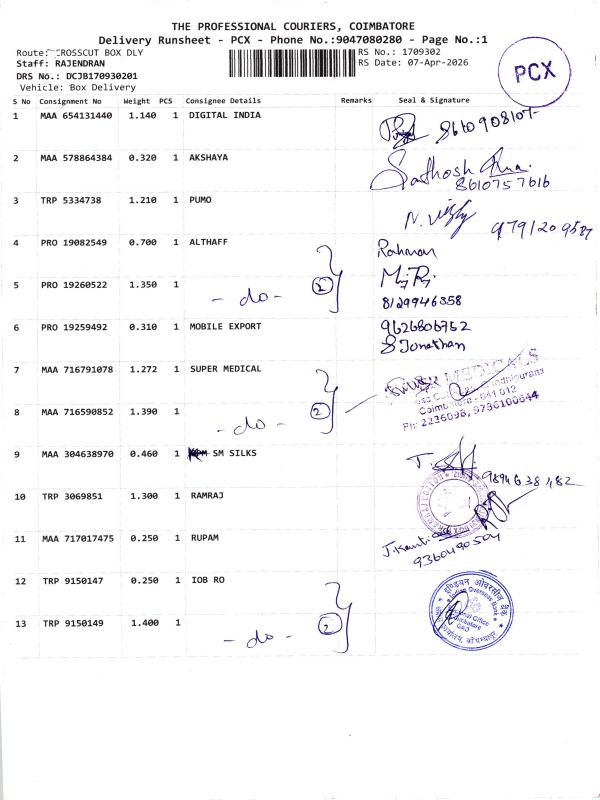 THE PROFESSIONAL COURIERS, COIMBATORE
Delivery Runsheet - PCX - Phone No.:9047080280 - Page No.:1
Route: CROSSCUT BOX DLY
RS No.: 1709302
Staff: RAJENDRAN
RS Date: 07-Apr-2026
DRS No.: DCJB170930201
Vehicle: Box Delivery
PCX
S No Consignment No Weight PCS Consignee Details Remarks Seal & Signature
1 MAA 654131440 1.140 1 DIGITAL INDIA
2 MAA 578864384 0.320 1 AKSHAYA
8610757616
3 TRP 5334738 1.210 1 PUMO
4 PRO 19082549 0.700 1 ALTHAFF Rahman
5 PRO 19260522 1.350 1 - do - 2
8129946358
6 PRO 19259492 0.310 1 MOBILE EXPORT 9626806752
S Jonathan
7 MAA 716791078 1.272 1 SUPER MEDICAL
MEDICALS
Coimbatore - 641 012
Ph: 2236098, 9786100644
8 MAA 716590852 1.390 1 - do - 2
9 MAA 304638970 0.460 1 SM SILKS
9894638482
10 TRP 3069851 1.300 1 RAMRAJ
11 MAA 717017475 0.250 1 RUPAM
9360490504
12 TRP 9150147 0.250 1 IOB RO
इण्डियन ओवरसीज बैंक
Indian Overseas Bank
Regional Office
Coimbatore
13 TRP 9150149 1.400 1 - do - 2